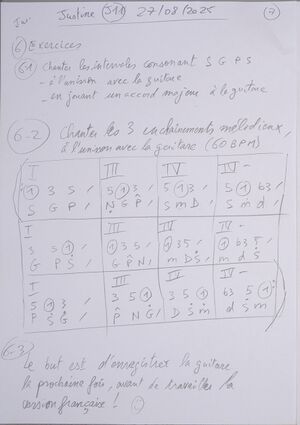 Justine J11 27/08/2025 7
6) Exercices
6.1 Chanter les intervalles consonant S G P S
- à l'unisson avec la guitare
- en jouant un accord majeur à la guitare
6-2 Chanter les 3 enchaînements mélodieux,
à l'unisson avec la guitare (60 BPM)
I III IV IV-
1 3 5 / 5 1 3 / 5 1 3 / 5 1 b3 /
S G P / N G P / S m D / S m d /
I III IV IV-
3 5 1 / 1 3 5 / 1 3 5 / 1 b3 5 /
G P S G P N / m D S / m d S
I III IV IV-
5 1 3 / 3 5 1 3 5 1 b3 5 1
P S G / P N G / D S m d S m
6-3
Le but est d'enregistrer la guitare
la prochaine fois, avant de travailler la
version française !